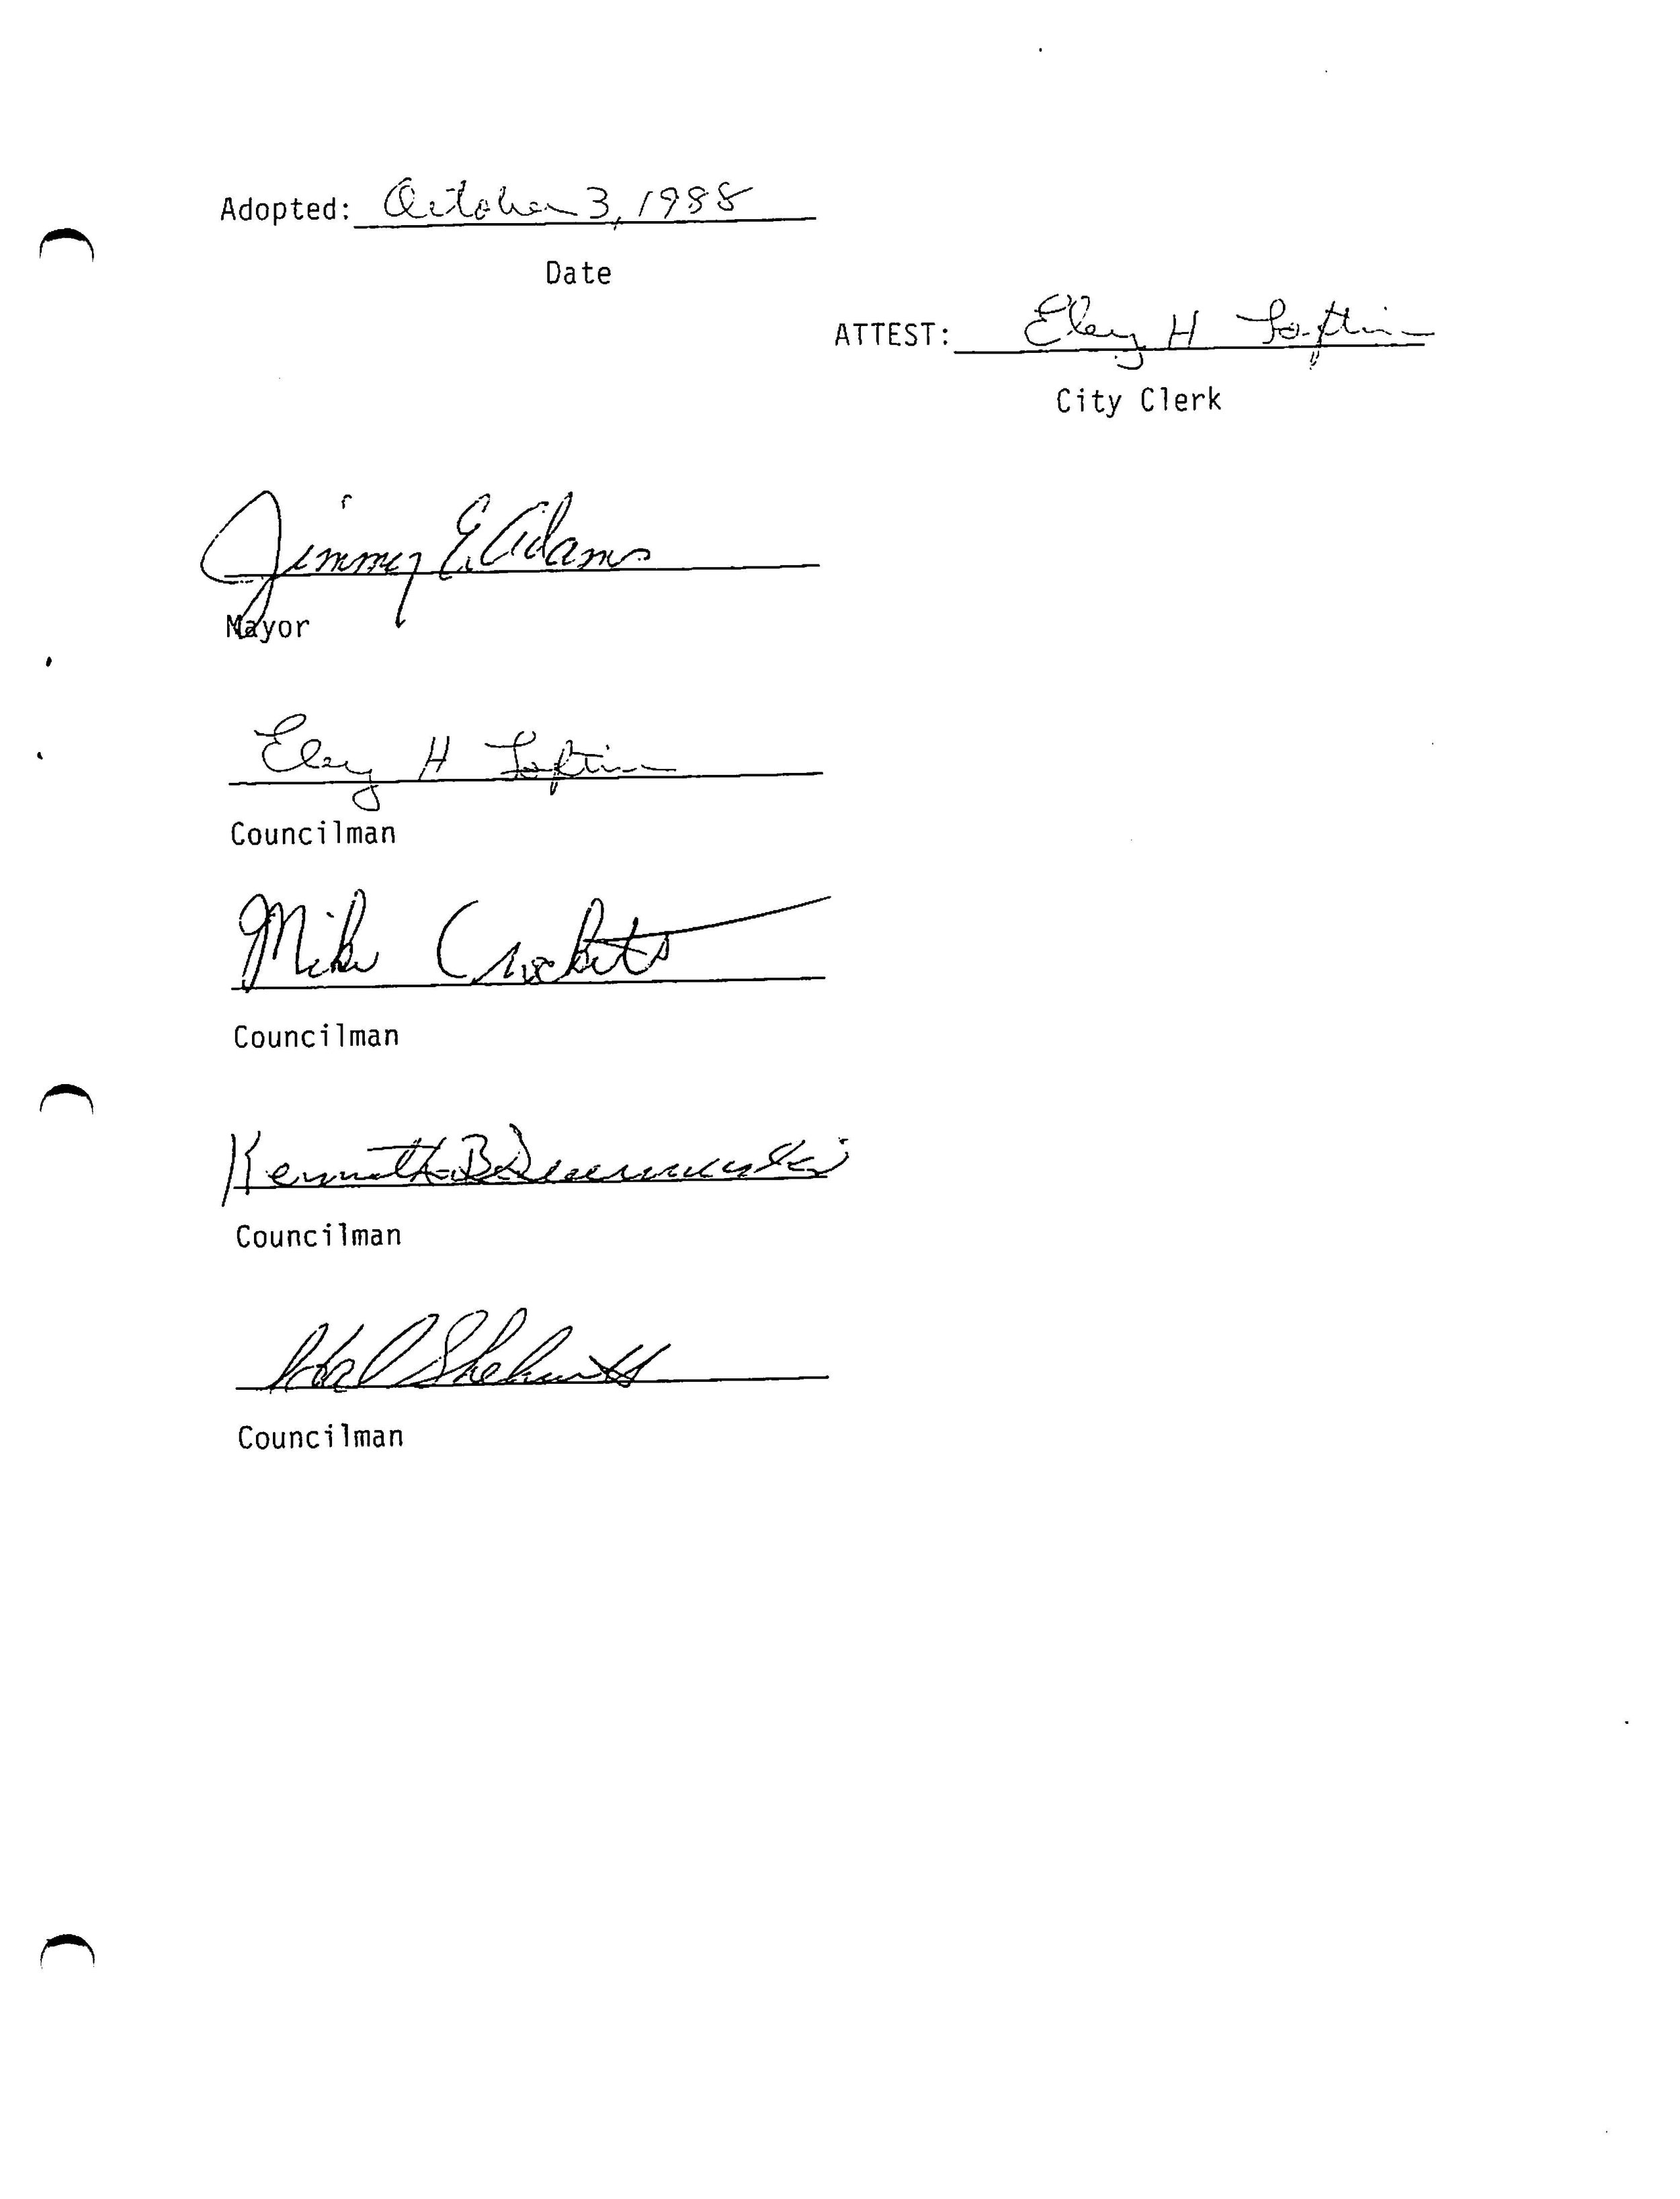 Adopted: October 3, 1988
Date
ATTEST: Eley H Loftin
City Clerk
Jimmy E. Adams
Mayor
Eley H Loftin
Councilman
Mike
Councilman
Kenneth B
Councilman
Hal
Councilman